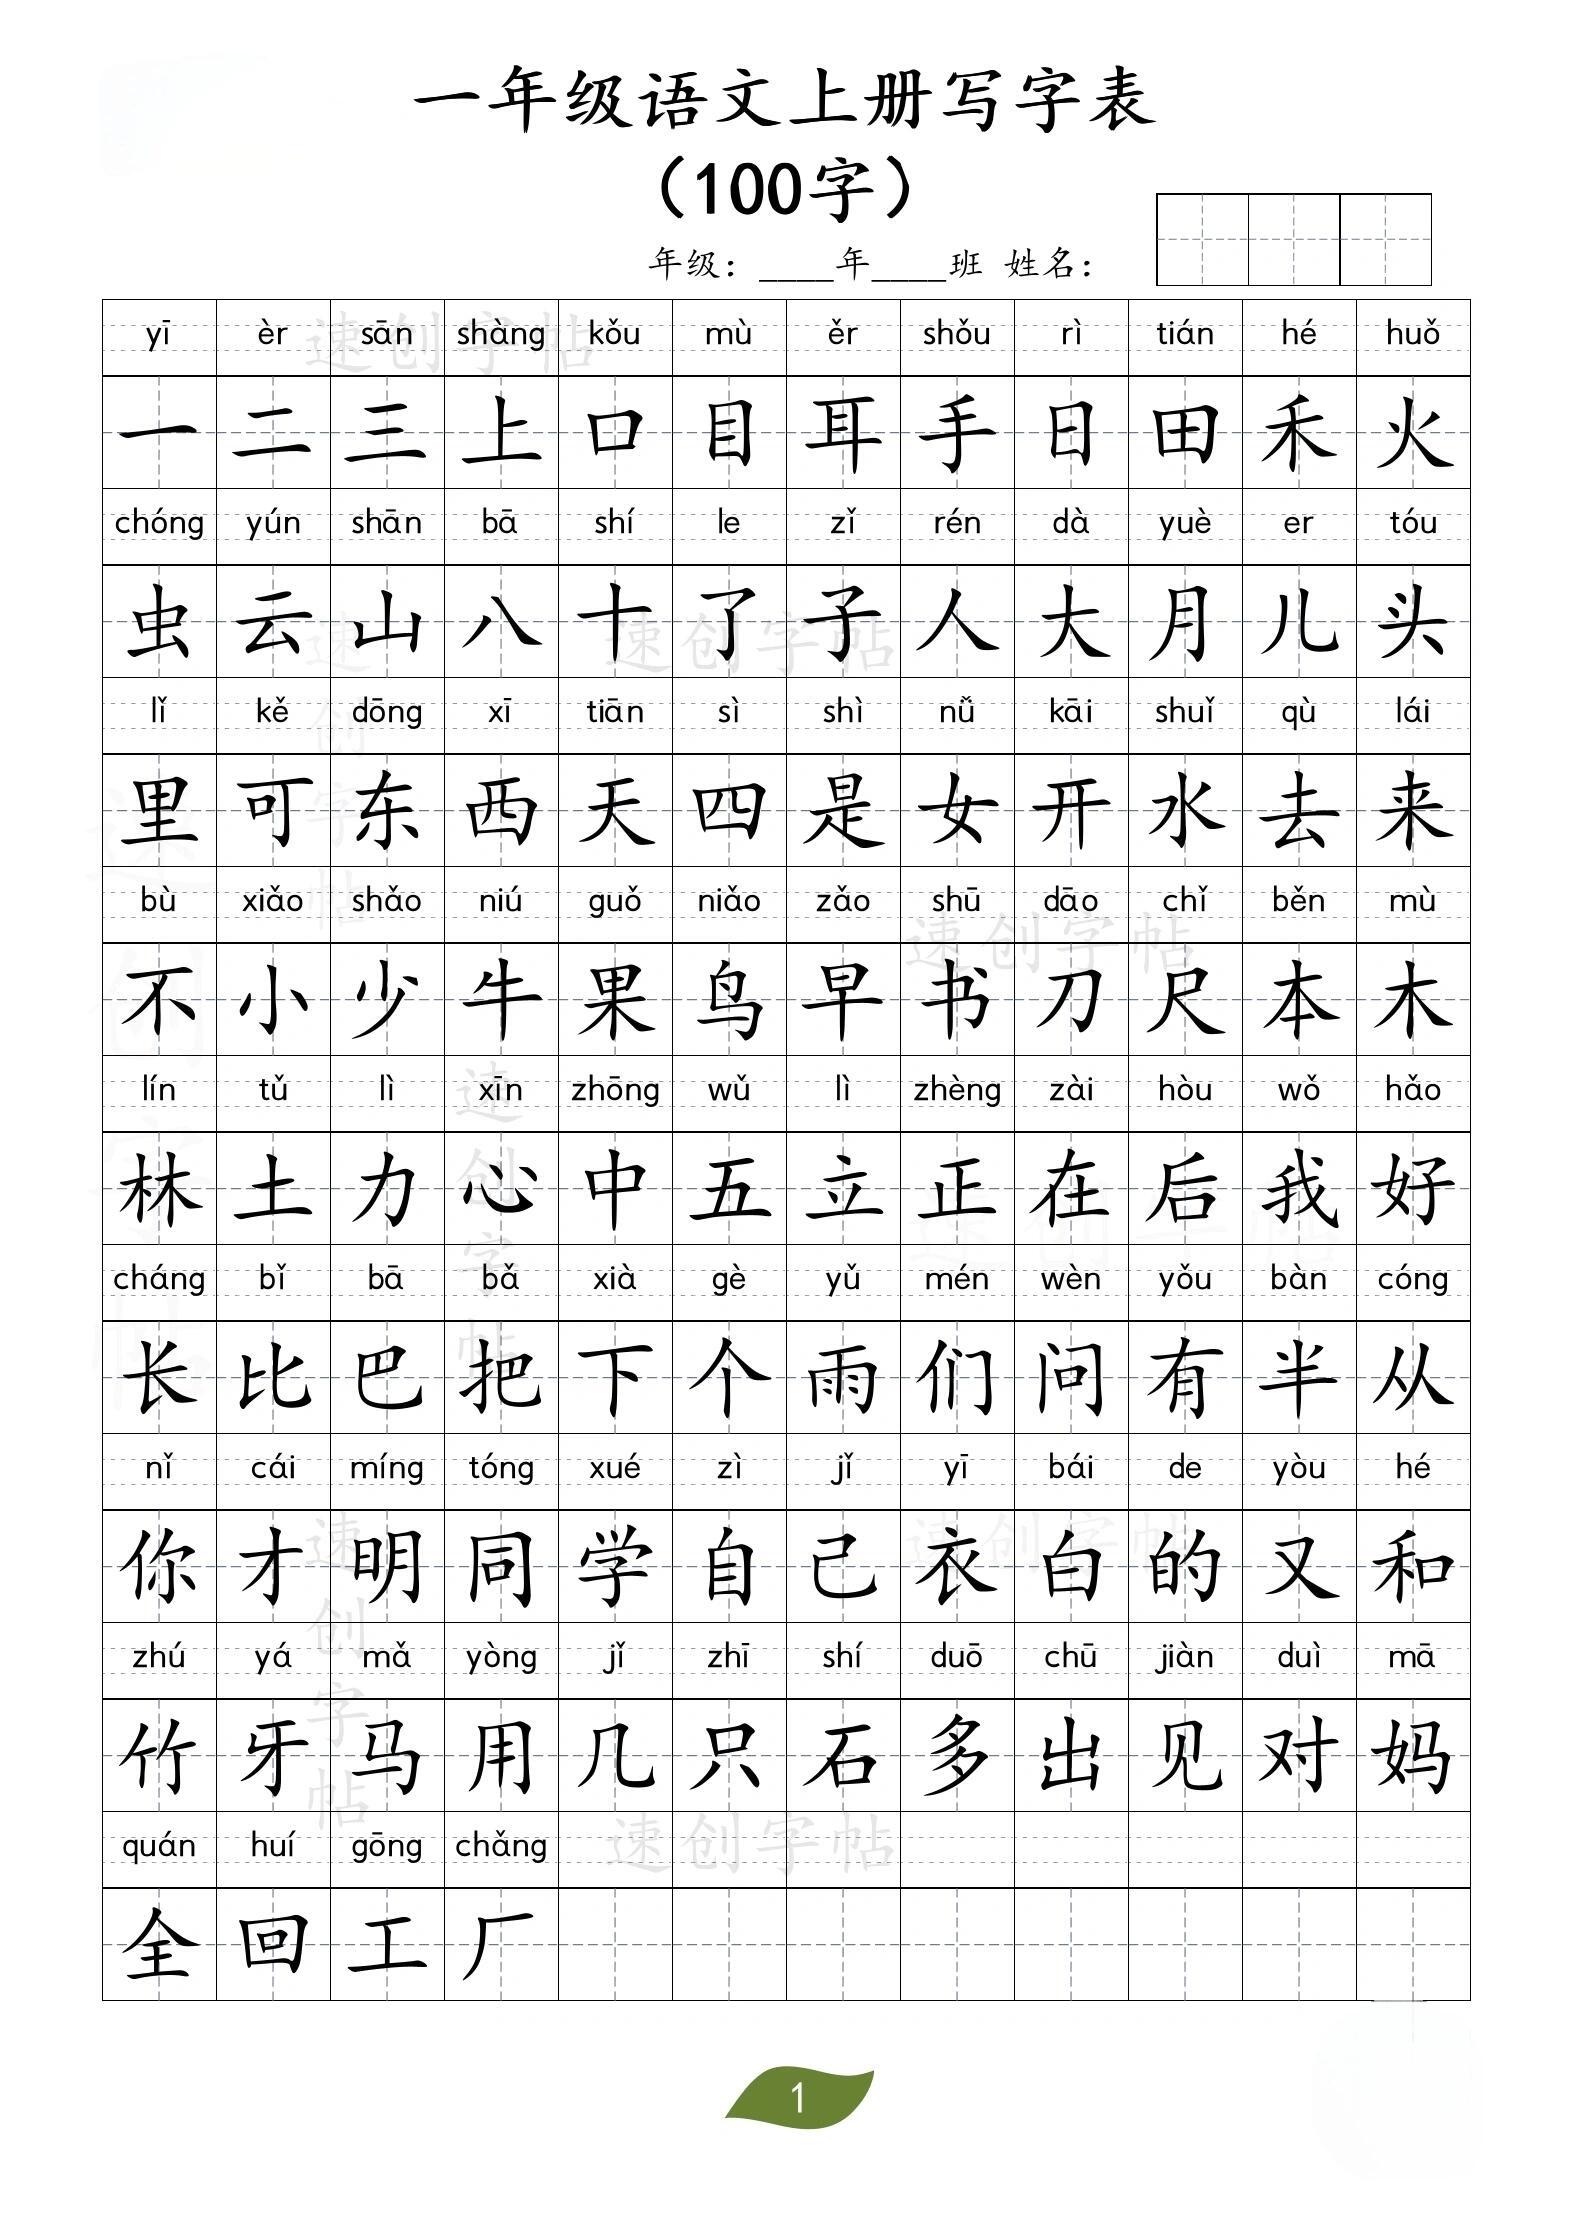 一年级语文上册写字表
（100字）
年级：____年____班 姓名：
yī èr sān shàng kǒu mù ěr shǒu rì tián hé huǒ
一 二 三 上 口 目 耳 手 日 田 禾 火
chóng yún shān bā shí le zǐ rén dà yuè er tóu
虫 云 山 八 十 了 子 人 大 月 儿 头
lǐ kě dōng xī tiān sì shì nǚ kāi shuǐ qù lái
里 可 东 西 天 四 是 女 开 水 去 来
bù xiǎo shǎo niú guǒ niǎo zǎo shū dāo chǐ běn mù
不 小 少 牛 果 鸟 早 书 刀 尺 本 木
lín tǔ lì xīn zhōng wǔ lì zhèng zài hòu wǒ hǎo
林 土 力 心 中 五 立 正 在 后 我 好
cháng bǐ bā bǎ xià gè yǔ mén wèn yǒu bàn cóng
长 比 巴 把 下 个 雨 们 问 有 半 从
nǐ cái míng tóng xué zì jǐ yī bái de yòu hé
你 才 明 同 学 自 己 衣 白 的 又 和
zhú yá mǎ yòng jǐ zhī shí duō chū jiàn duì mā
竹 牙 马 用 几 只 石 多 出 见 对 妈
quán huí gōng chǎng
全 回 工 厂
1
速创字帖
速创字帖
速创字帖
速创字帖
速创字帖
速创字帖
速创字帖
速创字帖
速创字帖